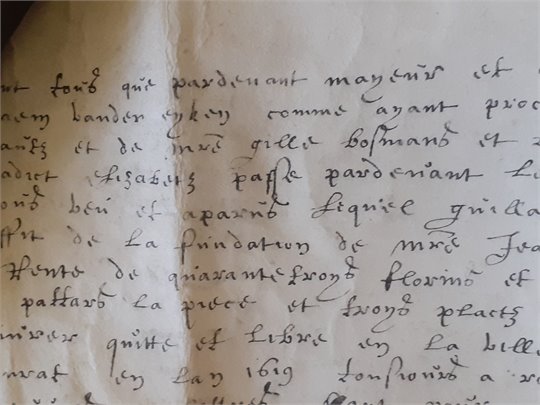 nt tous que pardevant mayeur et
aem vander eyken comme ayant proc
autz et de mre gille bosmans et
adict elizabetz passe pardevant Le
ous veu et aparus Lequel guilla
ffit de La fundation de mre Jea
Rente de quarante troys florins et
pattars La piece et troys plactz
quitte et Libre en La ville
en Lan 1619 tousiours a